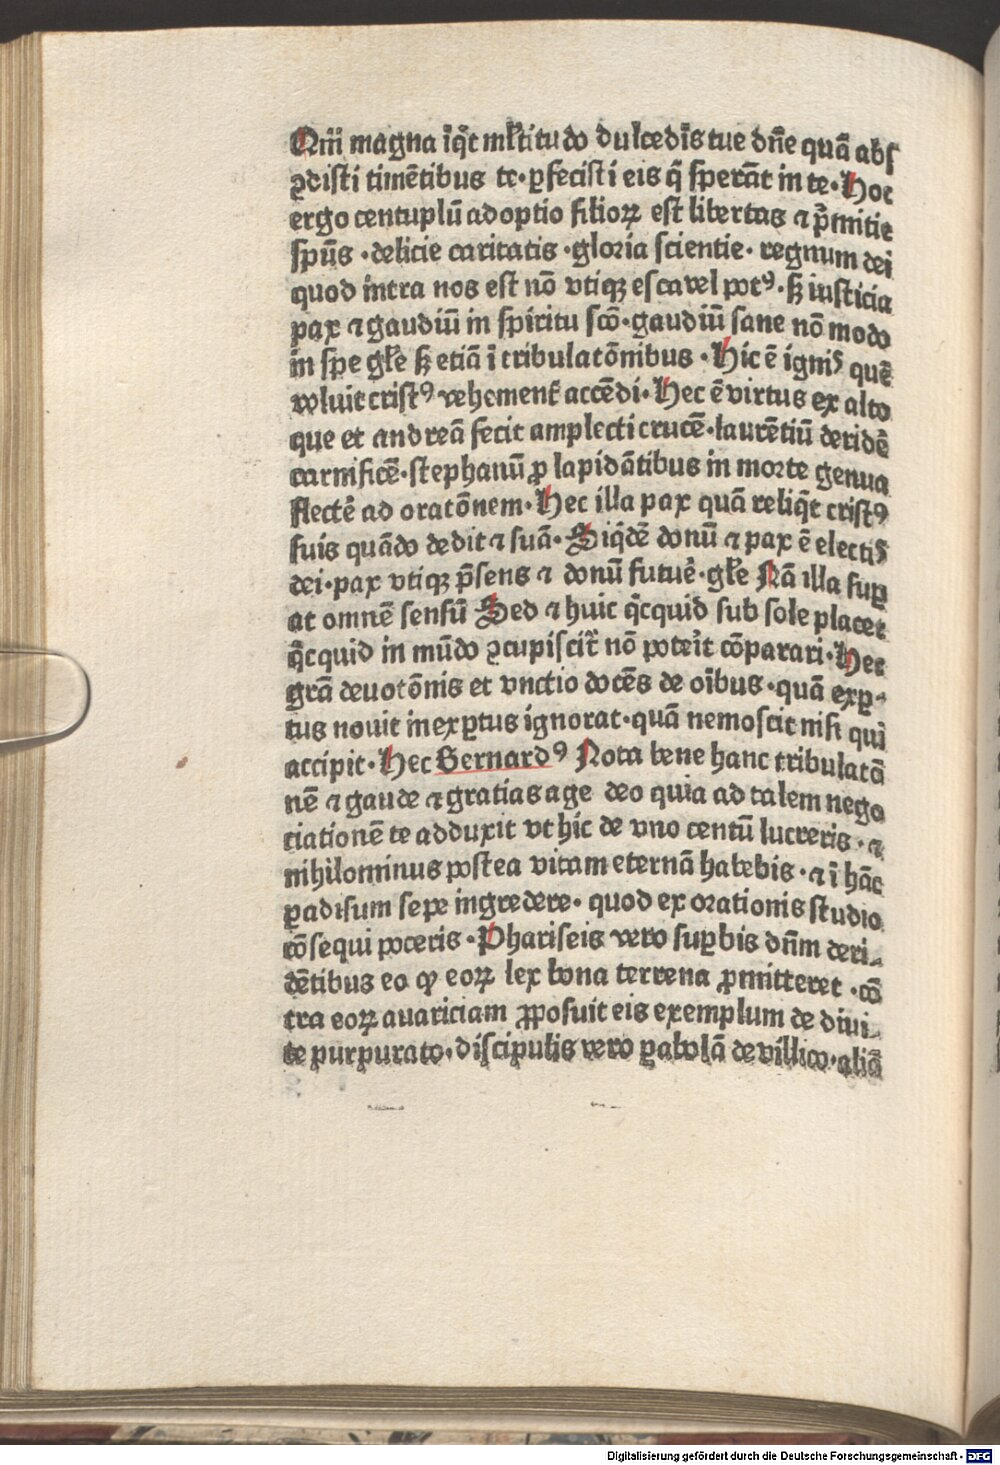 Qm̄ magna īq̄t ml̄titudo dulcedīs tue dn̄e quā abſ
ꝯdiſti timētibus te·ꝑfeciſti eis q̄ ſperāt in te·Hoc
ergo centuplū adoptio filioꝝ eſt libertas ⁊ p̄mitie
ſpūs ·delicie caritatis ·gloria ſcientie· regnum dei
quod intra nos eſt nō vtiqꝫ eſca vel potꝰ·ſꝫ iuſticia
pax ⁊ gaudiū in ſpiritu ſcō·gaudiū ſane nō modo
in ſpe gl̄e ſꝫ etiā ī tribulatōnibus ·Hic ē igniſ quē
voluit criſtꝰ vehemēt accēdi·Hec ē virtus ex alto
que et andreā fecit amplecti crucē·laurētiū deridē
carnificē·ſtephanū ꝓ lapidātibus in morte genua
flectē ad oratōnem·Hec illa pax quā reliq̄t criſtꝰ
ſuis quādo dedit ⁊ ſuā·Siq̄dē donū ⁊ pax ē electiſ
dei·pax vtiqꝫ p̄ſens ⁊ donū futuē·gl̄e Nā illa ſuꝑ
at omnē ſenſū Sed ⁊ huic q̄cquid ſub ſole placet
q̄cquid in mūdo ꝯcupiſcit̄ nō poteīt cōparari·Hec
grā deuotōnis et vnctio docēs de oībus·quā exꝑ⸗
tus nouit inexꝑtus ignorat·quā nemo ſcit niſi qui
accipit·Hec Bernardꝰ Nota bene hanc tribulatō
nē ⁊ gaude ⁊ gratias age deo quia ad talem nego
tiationē te adduxit vt hic de vno centū lucreris·⁊
nihilominus poſtea vitam eternā habebis·⁊ ī hāc
ꝑadiſum ſepe ingredere· quod ex orationis ſtudio
cōſequi poteris ·Phariſeis vero ſuꝑbis dn̄m deri⸗
dētibus eo ꝙ eoꝝ lex bona terrena ꝓmitteret ·cō
tra eoꝝ auariciam ꝓpoſuit eis exemplum de diui⸗
te purpurato·diſcipulis vero ꝑabolā de villico·aliā
Digitalisierung gefördert durch die Deutsche Forschungsgemeinschaft - DFG